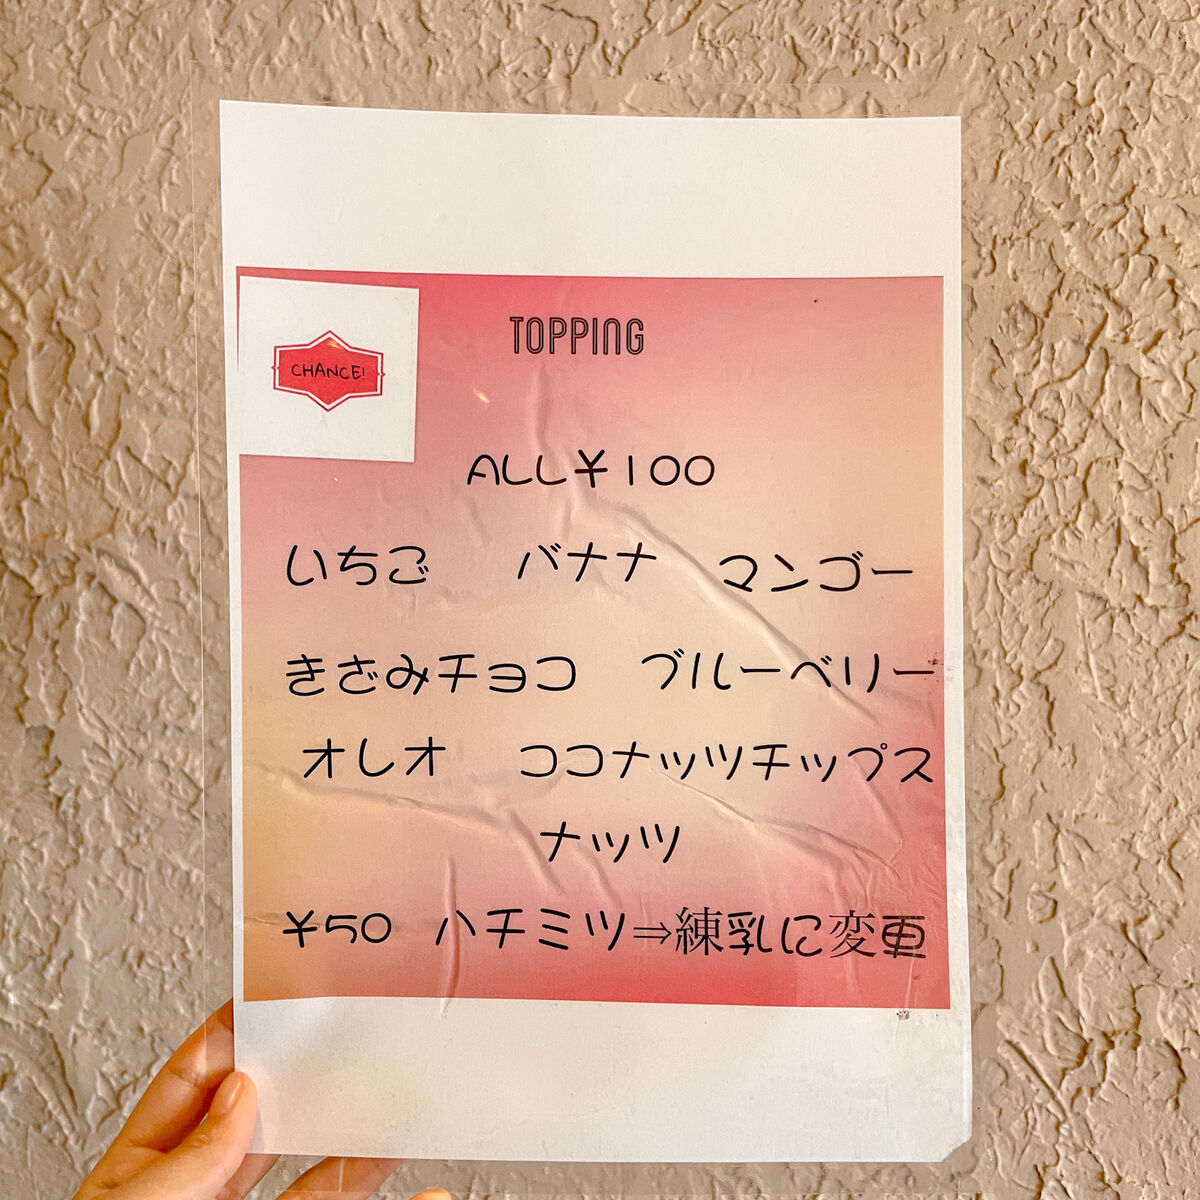 TOPPING
CHANCE!
ALL¥100
いちご バナナ マンゴー
きざみチョコ ブルーベリー
オレオ ココナッツチップス
ナッツ
¥50 ハチミツ⇒練乳に変更